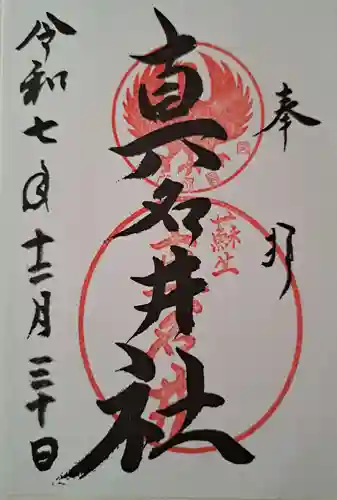 奉拝
真名井社
蘇生
令和七年十二月三十日